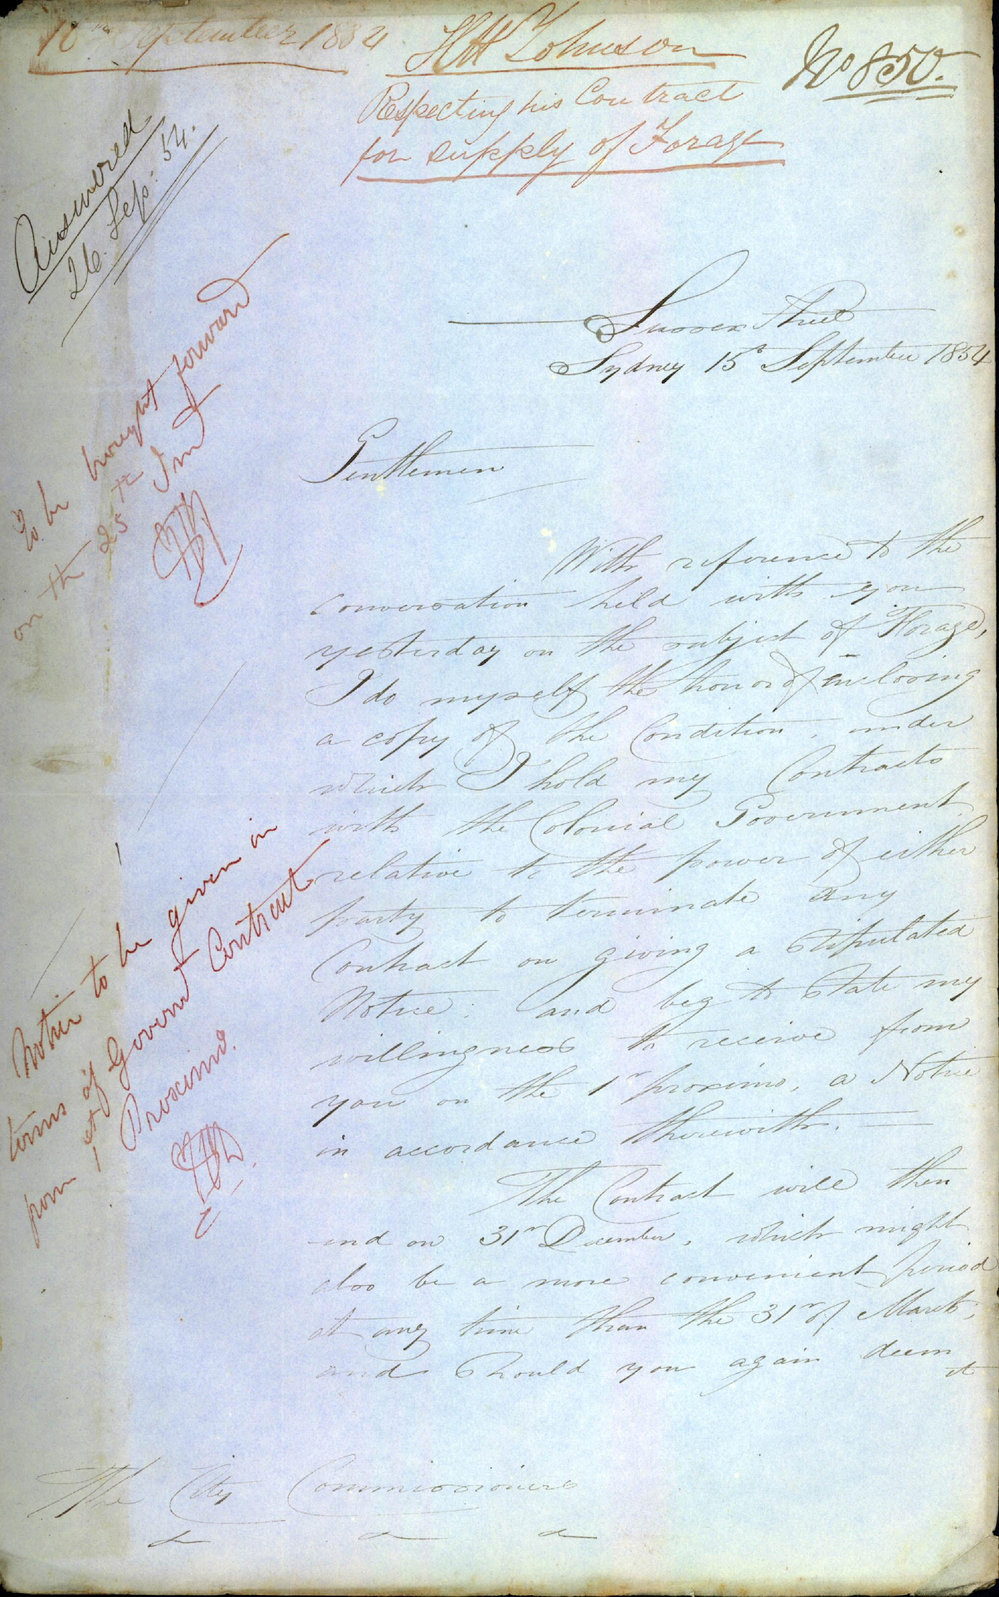 18th September 1854
H H Johnson
No 850.
Respecting his Contract
for supply of Forage
Answered
26. Sep: 54.
Sussex Street
Sydney 15th September 1854
To be brought forward
on the 25th Inst
Gentlemen
With reference to the
conversation held with you
yesterday on the subject of Forage,
I do myself the honor of inclosing
a copy of the Condition, under
which I hold my Contracts
with the Colonial Government
relative to the power of either
party to terminate any
Contract on giving a Stipulated
Notice: and beg to State my
willingness to receive from
you on the 1st proximo, a Notice
in accordance therewith.
Notice to be given in
terms of Governt Contract
from 1st Proximo.
The Contract will then
end on 31st December, which might
also be a more convenient period
at any time than the 31st of March;
and should you again deem
it
The City Commissioners